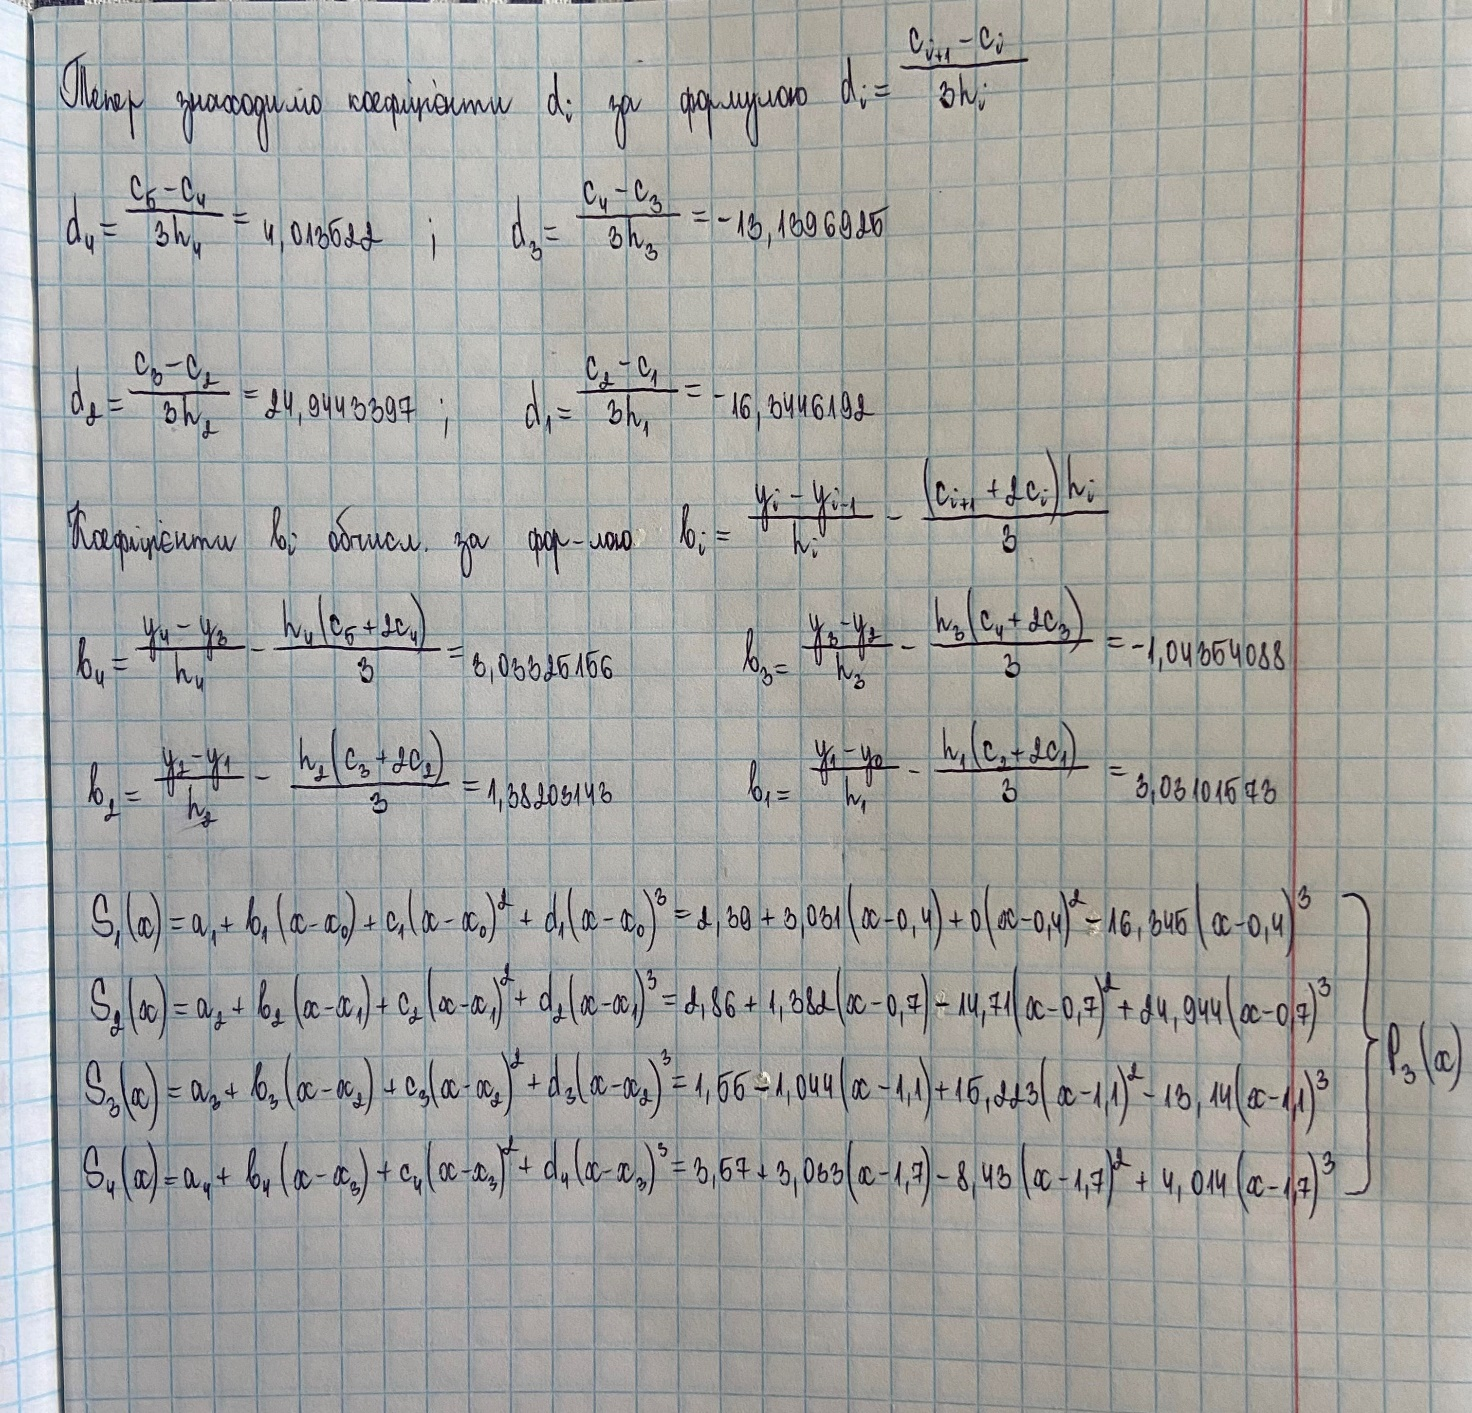 Тепер знаходимо коефіцієнти dᵢ за формулою dᵢ = (cᵢ₊₁ - cᵢ)/(3hᵢ)
d₄ = (c₅ - c₄)/(3h₄) = 4,013522 ; d₃ = (c₄ - c₃)/(3h₃) = -13,1396925
d₂ = (c₃ - c₂)/(3h₂) = 24,9443397 ; d₁ = (c₂ - c₁)/(3h₁) = -16,3446192
Коефіцієнти bᵢ обчисл. за фор-лою bᵢ = (yᵢ - yᵢ₋₁)/hᵢ - ((cᵢ₊₁ + 2cᵢ)hᵢ)/3
b₄ = (y₄ - y₃)/h₄ - (h₄(c₅ + 2c₄))/3 = 3,03325156 b₃ = (y₃ - y₂)/h₃ - (h₃(c₄ + 2c₃))/3 = -1,04354088
b₂ = (y₂ - y₁)/h₂ - (h₂(c₃ + 2c₂))/3 = 1,38203143 b₁ = (y₁ - y₀)/h₁ - (h₁(c₂ + 2c₁))/3 = 3,03101573
S₁(x) = a₁ + b₁(x - x₀) + c₁(x - x₀)² + d₁(x - x₀)³ = 2,39 + 3,031(x - 0,4) + 0(x - 0,4)² - 16,345(x - 0,4)³
S₂(x) = a₂ + b₂(x - x₁) + c₂(x - x₁)² + d₂(x - x₁)³ = 2,86 + 1,382(x - 0,7) - 14,71(x - 0,7)² + 24,944(x - 0,7)³
S₃(x) = a₃ + b₃(x - x₂) + c₃(x - x₂)² + d₃(x - x₂)³ = 1,55 - 1,044(x - 1,1) + 15,223(x - 1,1)² - 13,14(x - 1,1)³
S₄(x) = a₄ + b₄(x - x₃) + c₄(x - x₃)² + d₄(x - x₃)³ = 3,57 + 3,033(x - 1,7) - 8,43(x - 1,7)² + 4,014(x - 1,7)³
P₃(x)